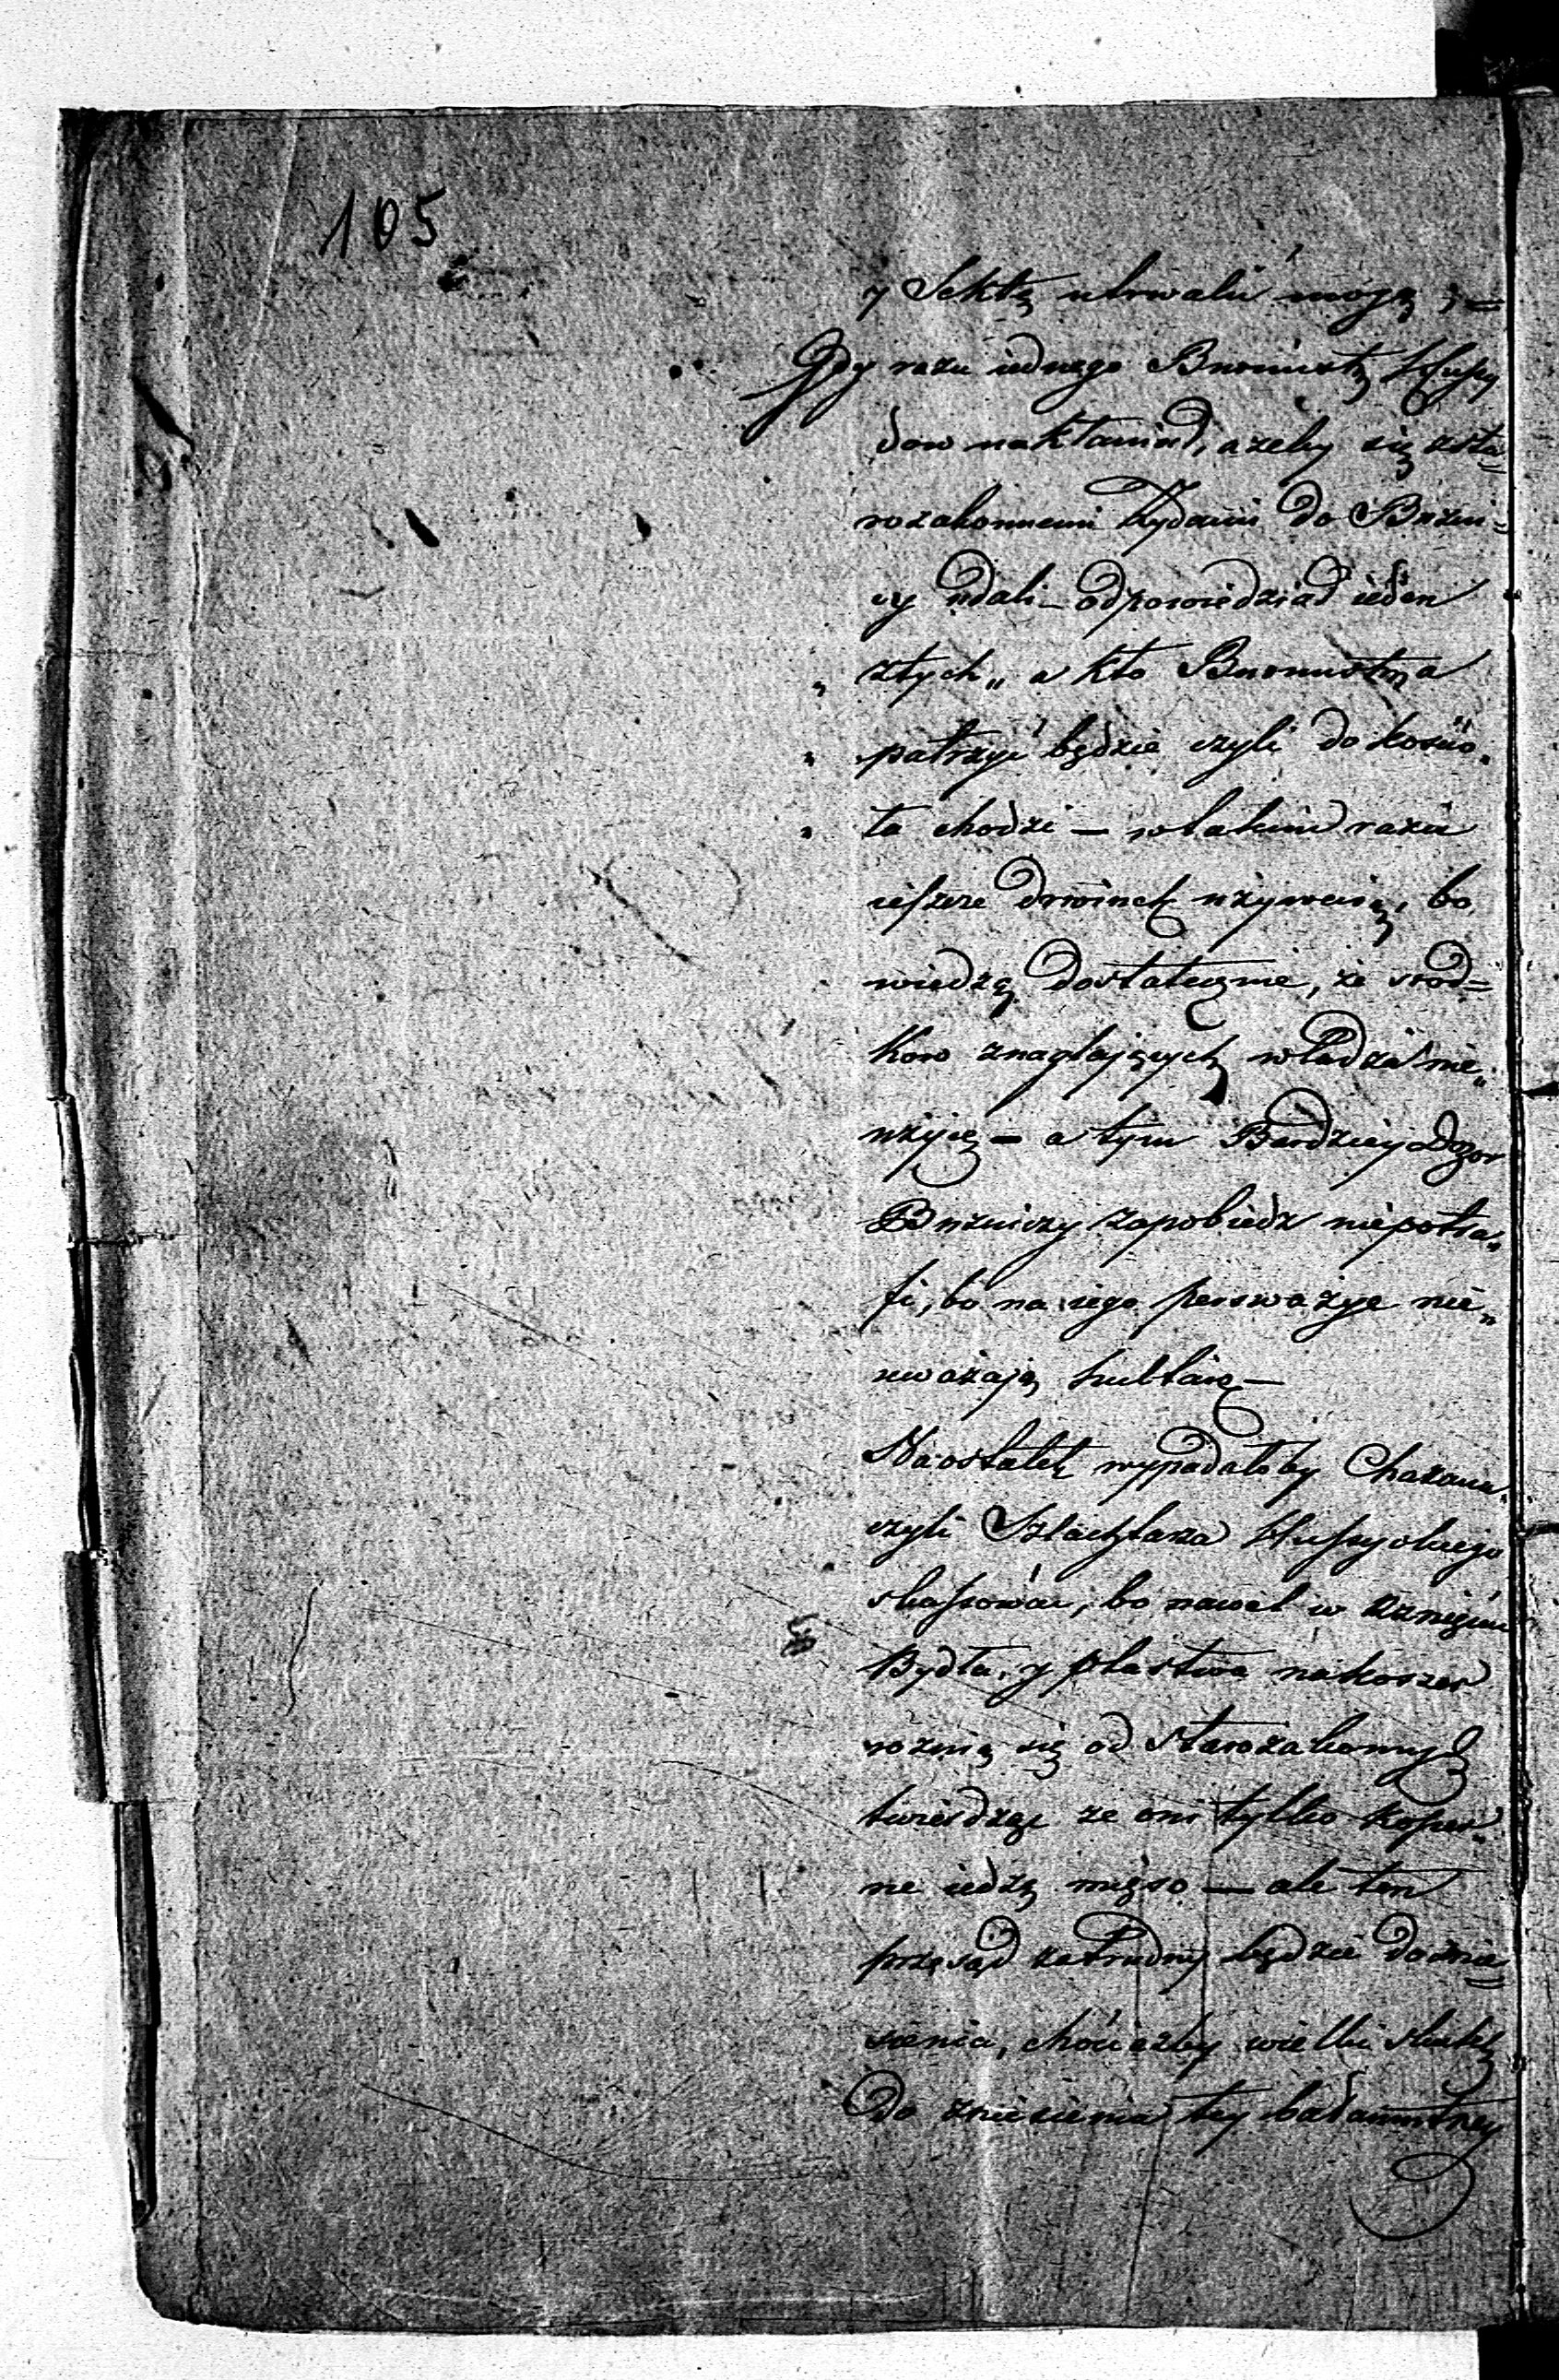 105
y Sektę utrwalić mogą; =
Gdy razu iednego Burmistrz Hussy
dow nakłaniał, azeby się zsta=
rozakonnemi Żydami do Bużni=
cy udali – odpowiedział ieden
„ ztych „ a kto Burmistrza
„ patrzyć będzie czyli do kościo„
„ ła chodzi – wtakim razie
ieszcze drwinek używaią, bo
wiedzą dostatecznie, że srod=
kow znaglających władza nie„
użyie – a tym Bardziey Dozor
Bużniczy zapobiedz niepotra„
fi, bo na iego perswazye nie„
uważają
Naostatek wypadałoby Chazana
czyli Szlachtarza Hussyckiego
skassować, bo nawet w rznięciu
Bydła, y ptastwa nakoszer
roznią się od Starozakonnych
twierdząc ze oni tylko kosser„
ne iedzą mięso — ale ten
przesąd zatrudny będzie do znie=
sienia, chociażby wielki skutek
Do zniesienia tey bałamutney